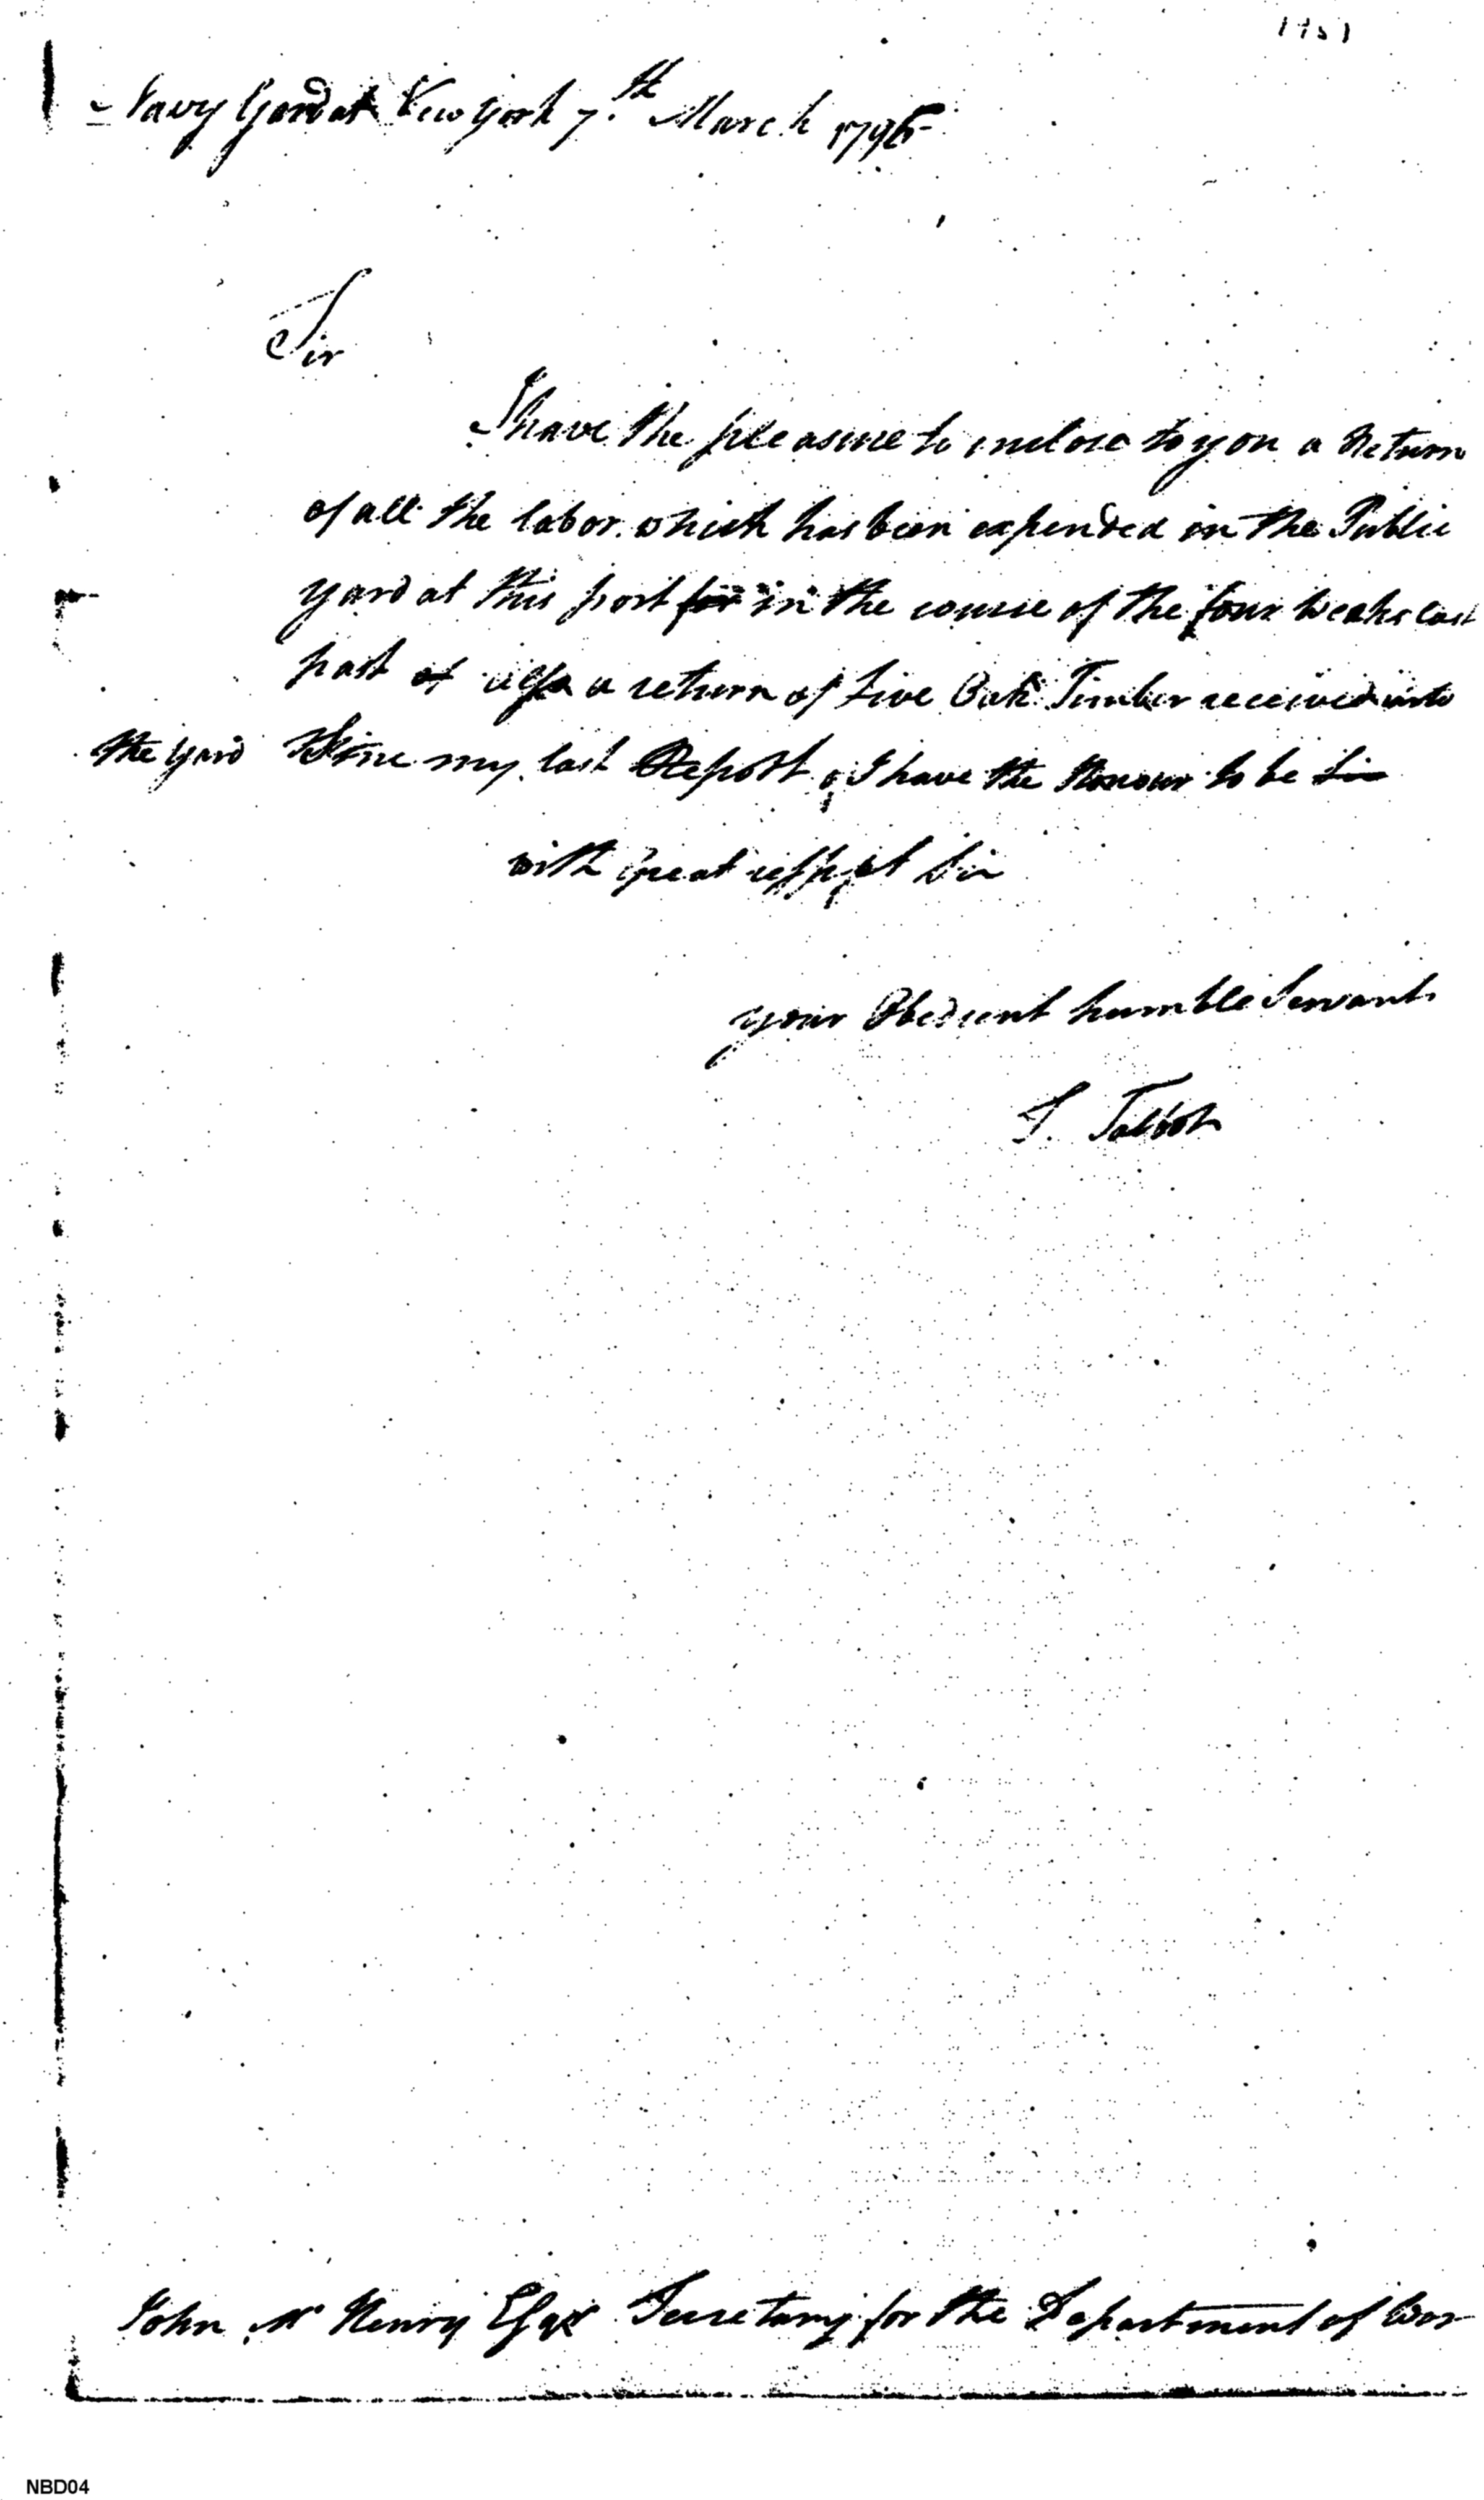 Navy Yard at New york 7.th March 1796
Sir
I have the pleasure to inclose to you a Return
of all the labor which has been expended in the Public
yard at this port for in the course of the four Weeks last
past of also a return of Live Oak Timber received into
the yard Since my last Report, I have the Honour to be Sir
with great respect Sir
your Obedient humble Servant
S. Talbot
John Mc Henry Esqr Secretary for the Department of War
NBD04